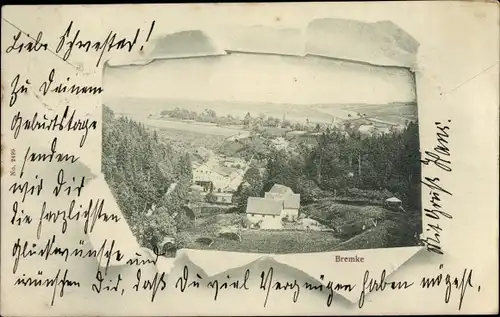 Liebe Schwester!
Zu Deinem
Geburtstage
senden
wir Dir
die herzlichsten
Glückwünsche und
wünschen Dir, daß Du viel Vergnügen haben mögest,
Mit Gruß Hans.
No. 2499
Bremke